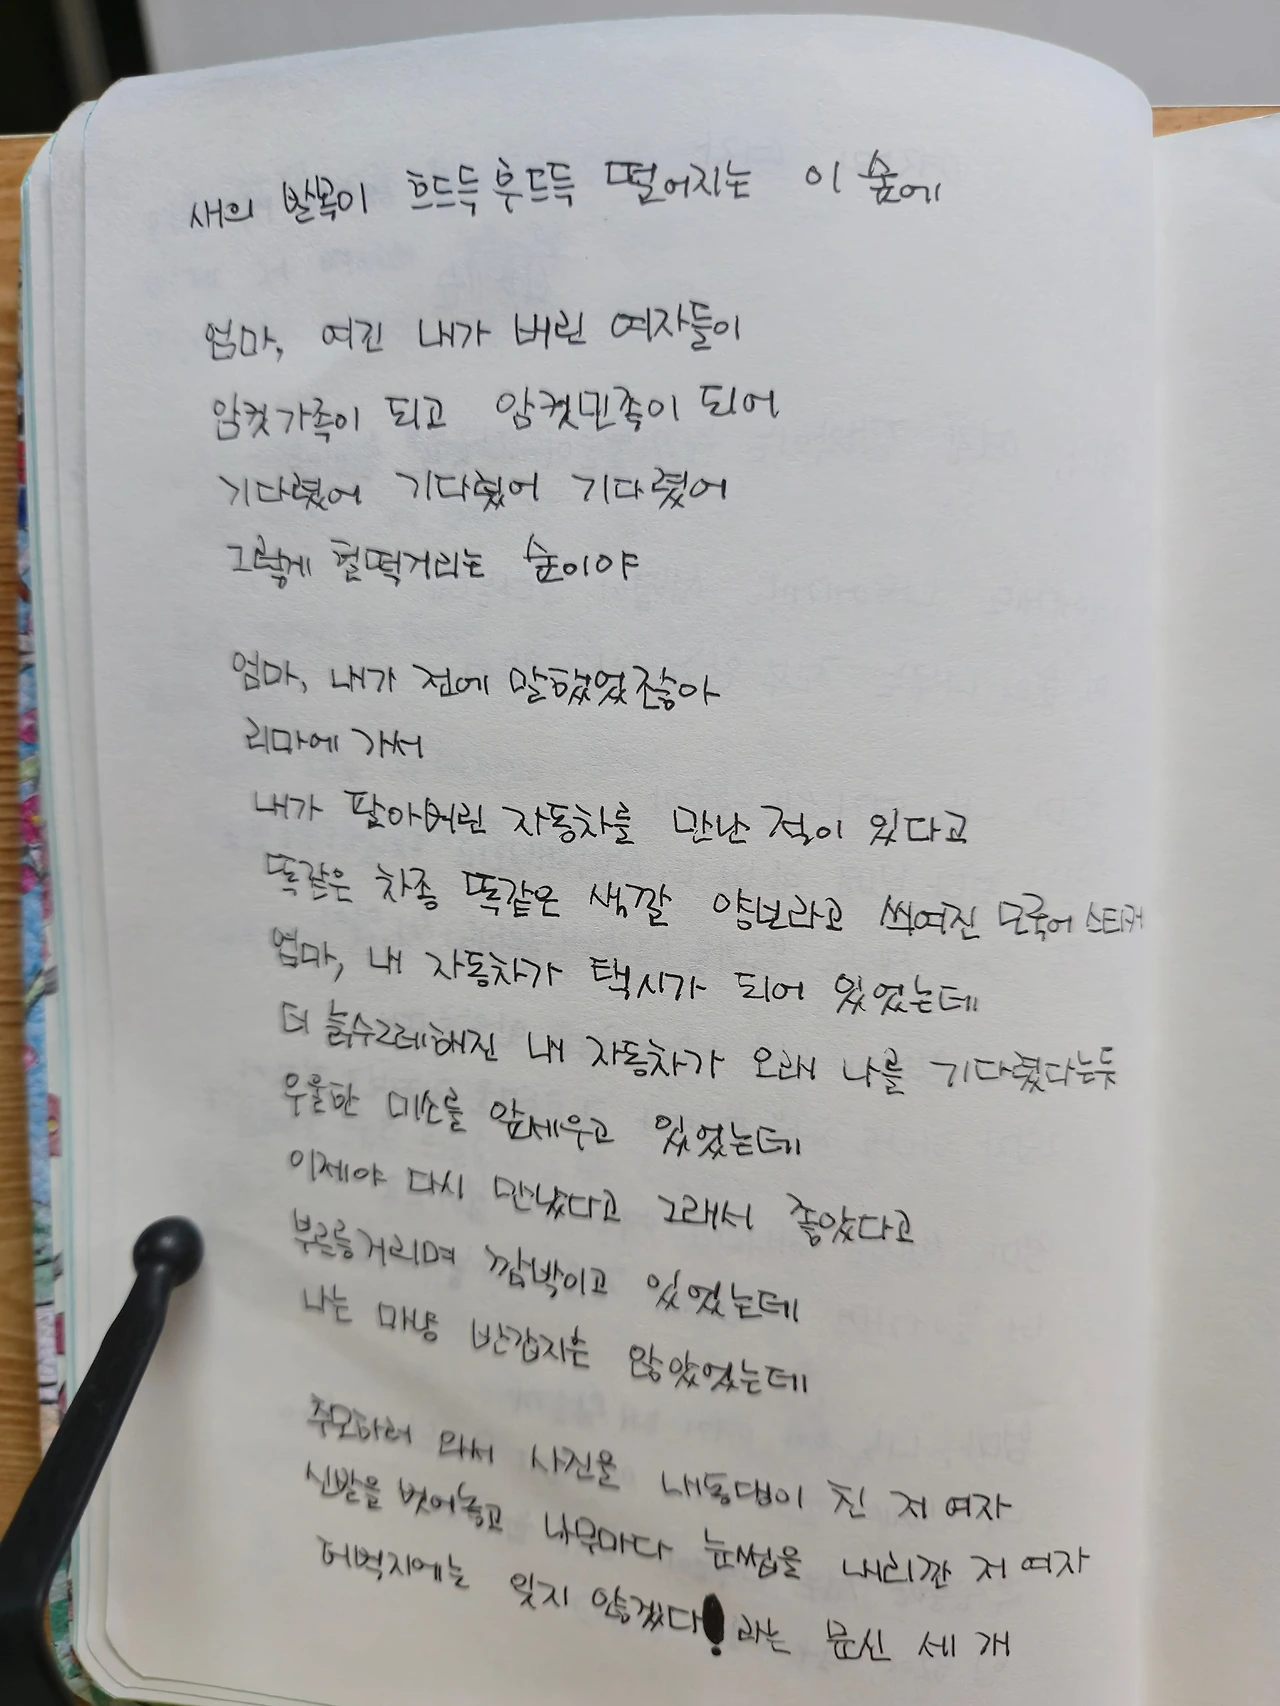 새의 발목이 흐드득 후드득 떨어지는 이 숲에
엄마, 여긴 내가 버린 여자들이
암컷가족이 되고 암컷민족이 되어
기다렸어 기다렸어 기다렸어
그렇게 헐떡거리는 숲이야
엄마, 내가 전에 말했었잖아
리마에 가서
내가 팔아버린 자동차를 만난 적이 있다고
똑같은 차종 똑같은 색깔 양보라고 씌여진 모국어 스티커
엄마, 내 자동차가 택시가 되어 있었는데
더 늙수그레해진 내 자동차가 오래 나를 기다렸다는듯
우울한 미소를 앞세우고 있었는데
이제야 다시 만났다고 그래서 좋았다고
부르릉거리며 깜박이고 있었는데
나는 마냥 반갑지는 않았었는데
추모하러 와서 사진을 내동댕이 친 저 여자
신발을 벗어놓고 나무마다 눈썹을 내리깐 저 여자
허벅지에는 잊지 않겠다 라는 문신 세 개